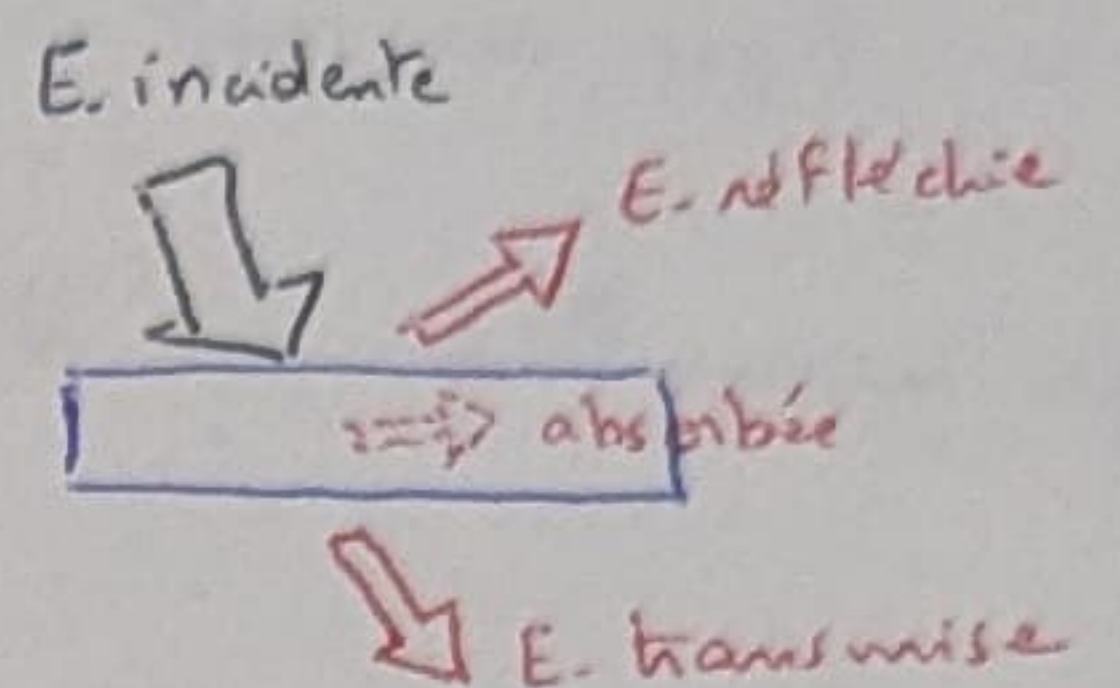 E. incidente
E. réfléchie
absorbée
E. transmise